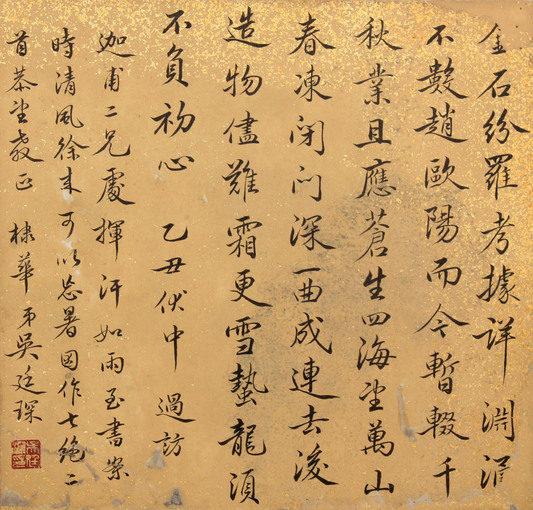 金石紛羅考據詳 淵涯
不數趙歐陽而今暫輟千
秋業且應蒼生四海望萬山
春凍閉門深一曲成連去後
造物儘難霜更雪蟄龍須
不負初心 乙丑伏中 過訪
迦甫二兄處揮汗如雨至書案
時清風徐来可以忘暑因作七絶二
首恭呈教正 棣華弟吳廷琛